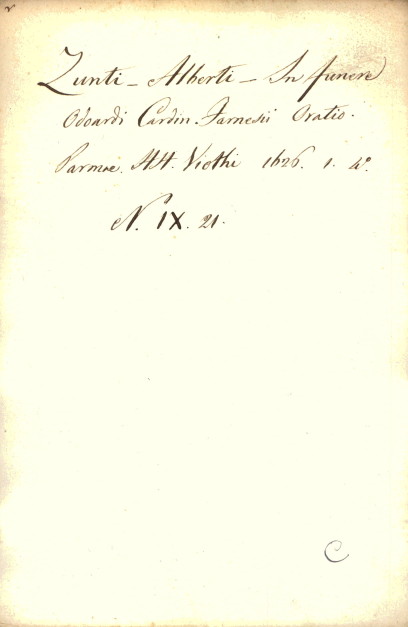 Zunti - Alberti - In funere
Odoardi Cardin. Farnesii Oratio.
Parmae. Viothi 1626. 1. 4º.
N. IX. 21.
C